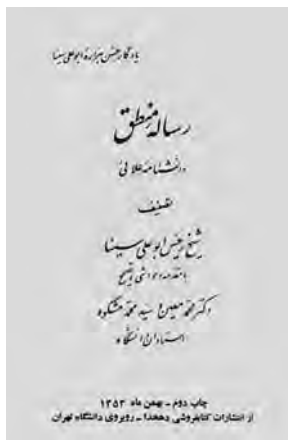 یادگار جشن هزارهٔ ابوعلی سینا
رسالهٔ منطق
دانشنامهٔ علائی
تصنیف
شیخ رئیس ابوعلی سینا
با مقدمه و حواشی و تصحیح
دکتر محمد معین و سید محمد مشکوة
استادان دانشگاه
چاپ دوم ـ بهمن ماه ۱۳۵۳
از انتشارات کتابفروشی دهخدا ـ روبروی دانشگاه تهران